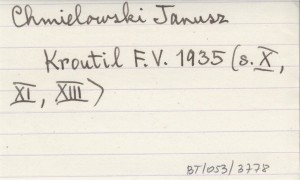 Chmielowski Janusz
Kroutil F.V. 1935 (s. X,
XI, XIII)
BT/053/3778